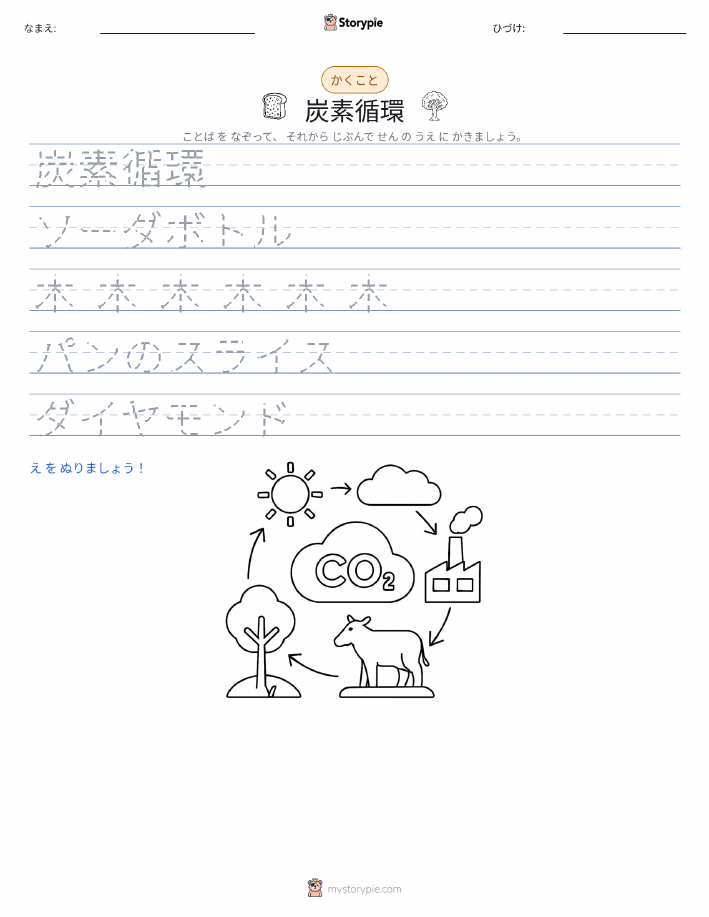 なまえ:
Storypie
ひづけ:
かくこと
炭素循環
ことば を なぞって、 それから じぶんで せん の うえ に かきましょう。
炭素循環
ソーダボトル
木 木 木 木 木 木
パンのスライス
ダイヤモンド
え を ぬりましょう！
CO₂
mystorypie.com